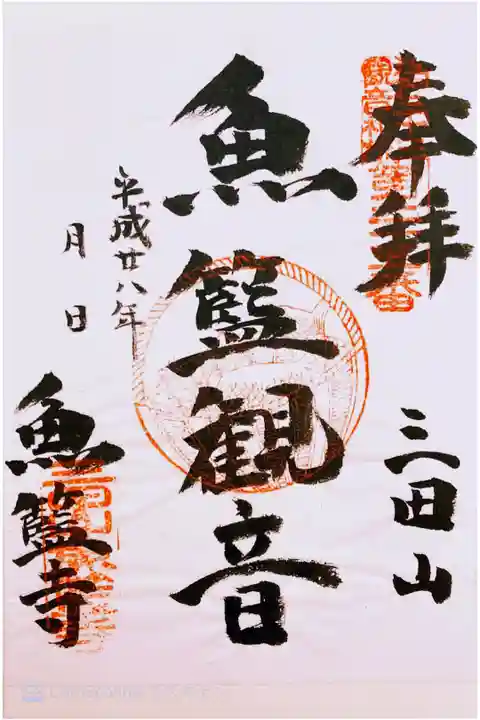 奉拝
三田山
魚籃観音
平成廿八年
月 日
魚籃寺